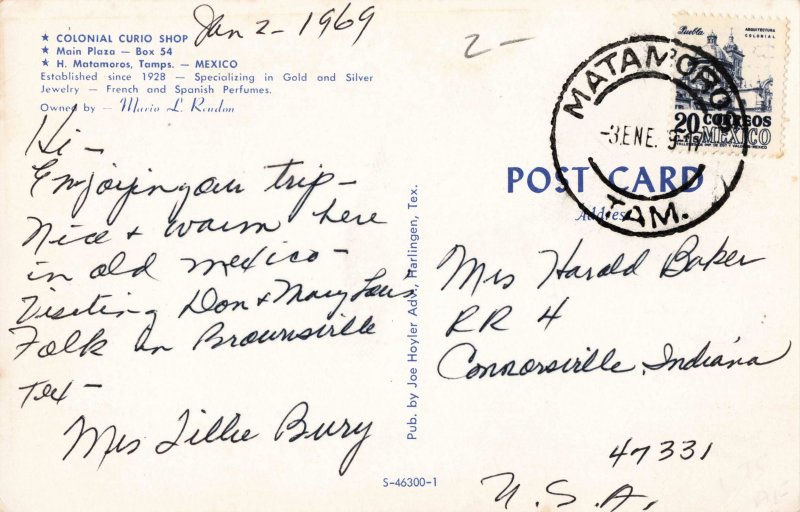 Jan 2 - 1969
★ COLONIAL CURIO SHOP
★ Main Plaza — Box 54
★ H. Matamoros, Tamps. — MEXICO
Established since 1928 — Specializing in Gold and Silver
Jewelry — French and Spanish Perfumes.
Owned by — Mario L. Rendon
Hi -
Enjoying our trip -
Nice + warm here
in old Mexico -
Visiting Don + Mary Lou's
Folk in Brownsville
Tex -
Mrs Lillie Bury
Pub. by Joe Hoyler Adv., Harlingen, Tex.
S-46300-1
2 -
Puebla
ARQUITECTURA
COLONIAL
20 CORREOS
CTS MEXICO
MATAMOROS
-3.ENE. 9 17
TAM.
POST CARD
Address
Mrs Harold Baker
RR 4
Connorsville, Indiana
47331
U.S.A.